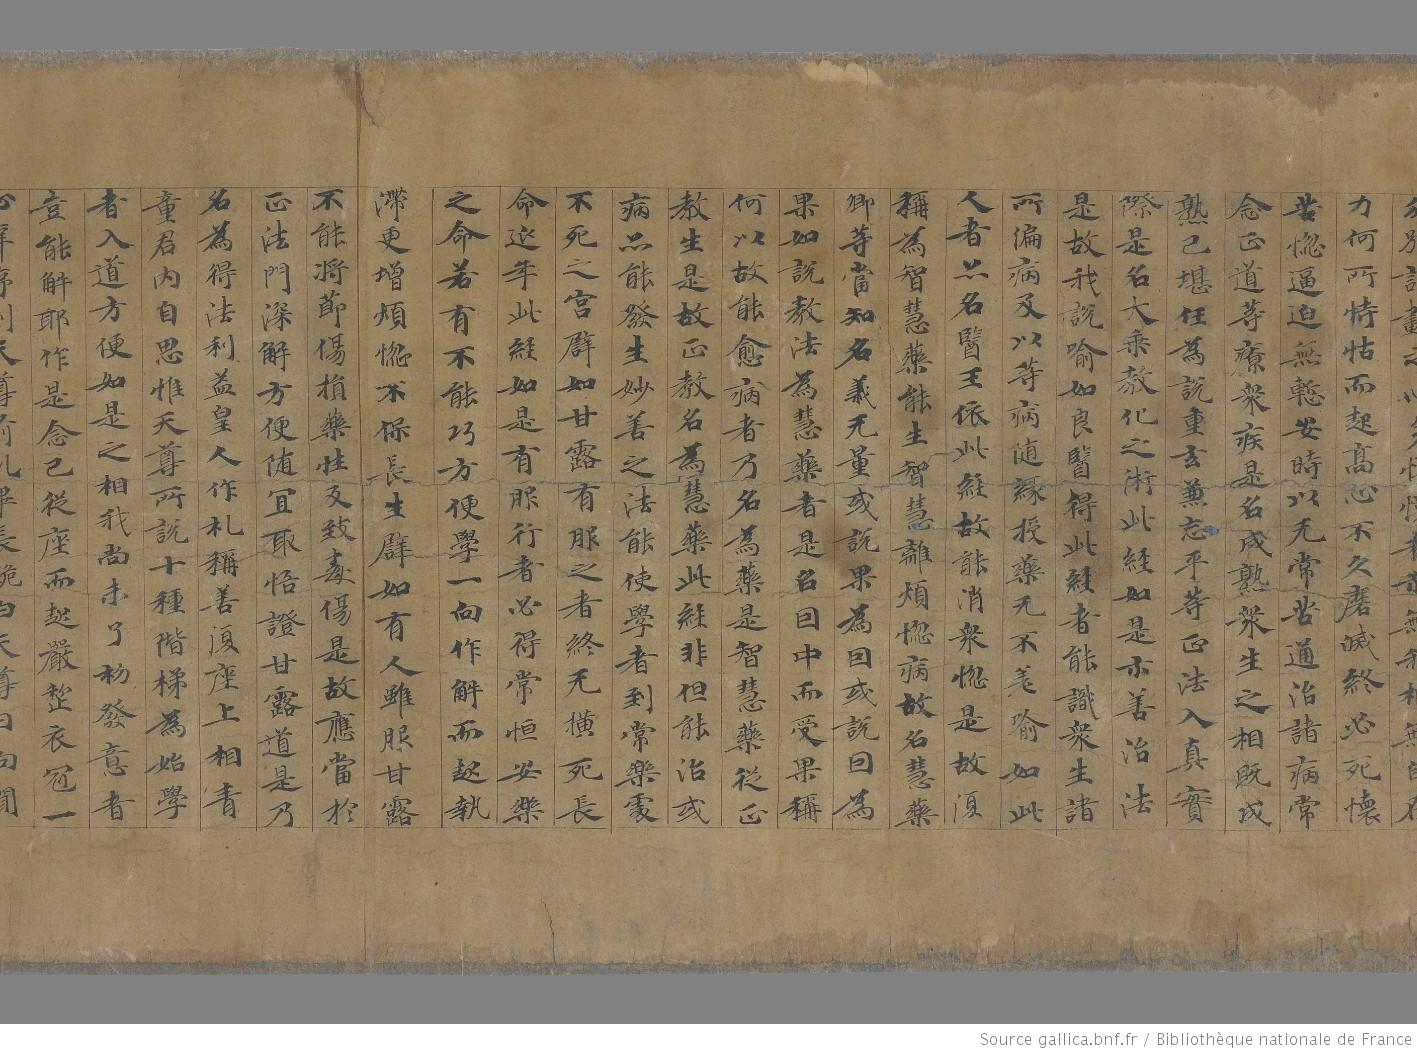 力何所恃怙而起高心不久磨滅終必死懷
苦惱逼迫無慙安時以无常苦通治諸病常
念正道等療衆疾是名成熟衆生之相既成
熟已堪任為說重玄兼忘平等正法入真實
際是名大乘教化之術此經如是亦善治法
是故我說喻如良醫得此經者能識衆生諸
所偏病及以等病随緣授藥无不差喻如此
人者亦名醫王依此經故能消衆惱是故湏
稱為智慧藥能生智慧離煩惱病故名慧藥
卿等當知名義无量或說果為因或說因為
果如說教法為慧藥者是名因中而受果稱
何以故能愈病者乃名為藥是智慧藥從正
教生是故正教名為慧藥此經非但能治或
病亦能發生妙善之法能使學者到常樂處
不死之宮譬如甘露有服之者終无橫死長
命延年此經如是有服行者必得常恒安樂
之命若有不能巧方便學一向作解而起執
滯更增煩惱不保長生譬如有人雖服甘露
不能將節傷損藥性反致毒傷是故應當於
正法門深解方便随宜取悟證甘露道是乃
名為得法利益皇人作礼稱善復座上相青
童君内自思惟天尊所說十種階梯為始學
者入道方便如是之相我尚未了初發意者
豈能解耶作是念已從座而起嚴整衣冠一
Source gallica.bnf.fr / Bibliothèque nationale de France